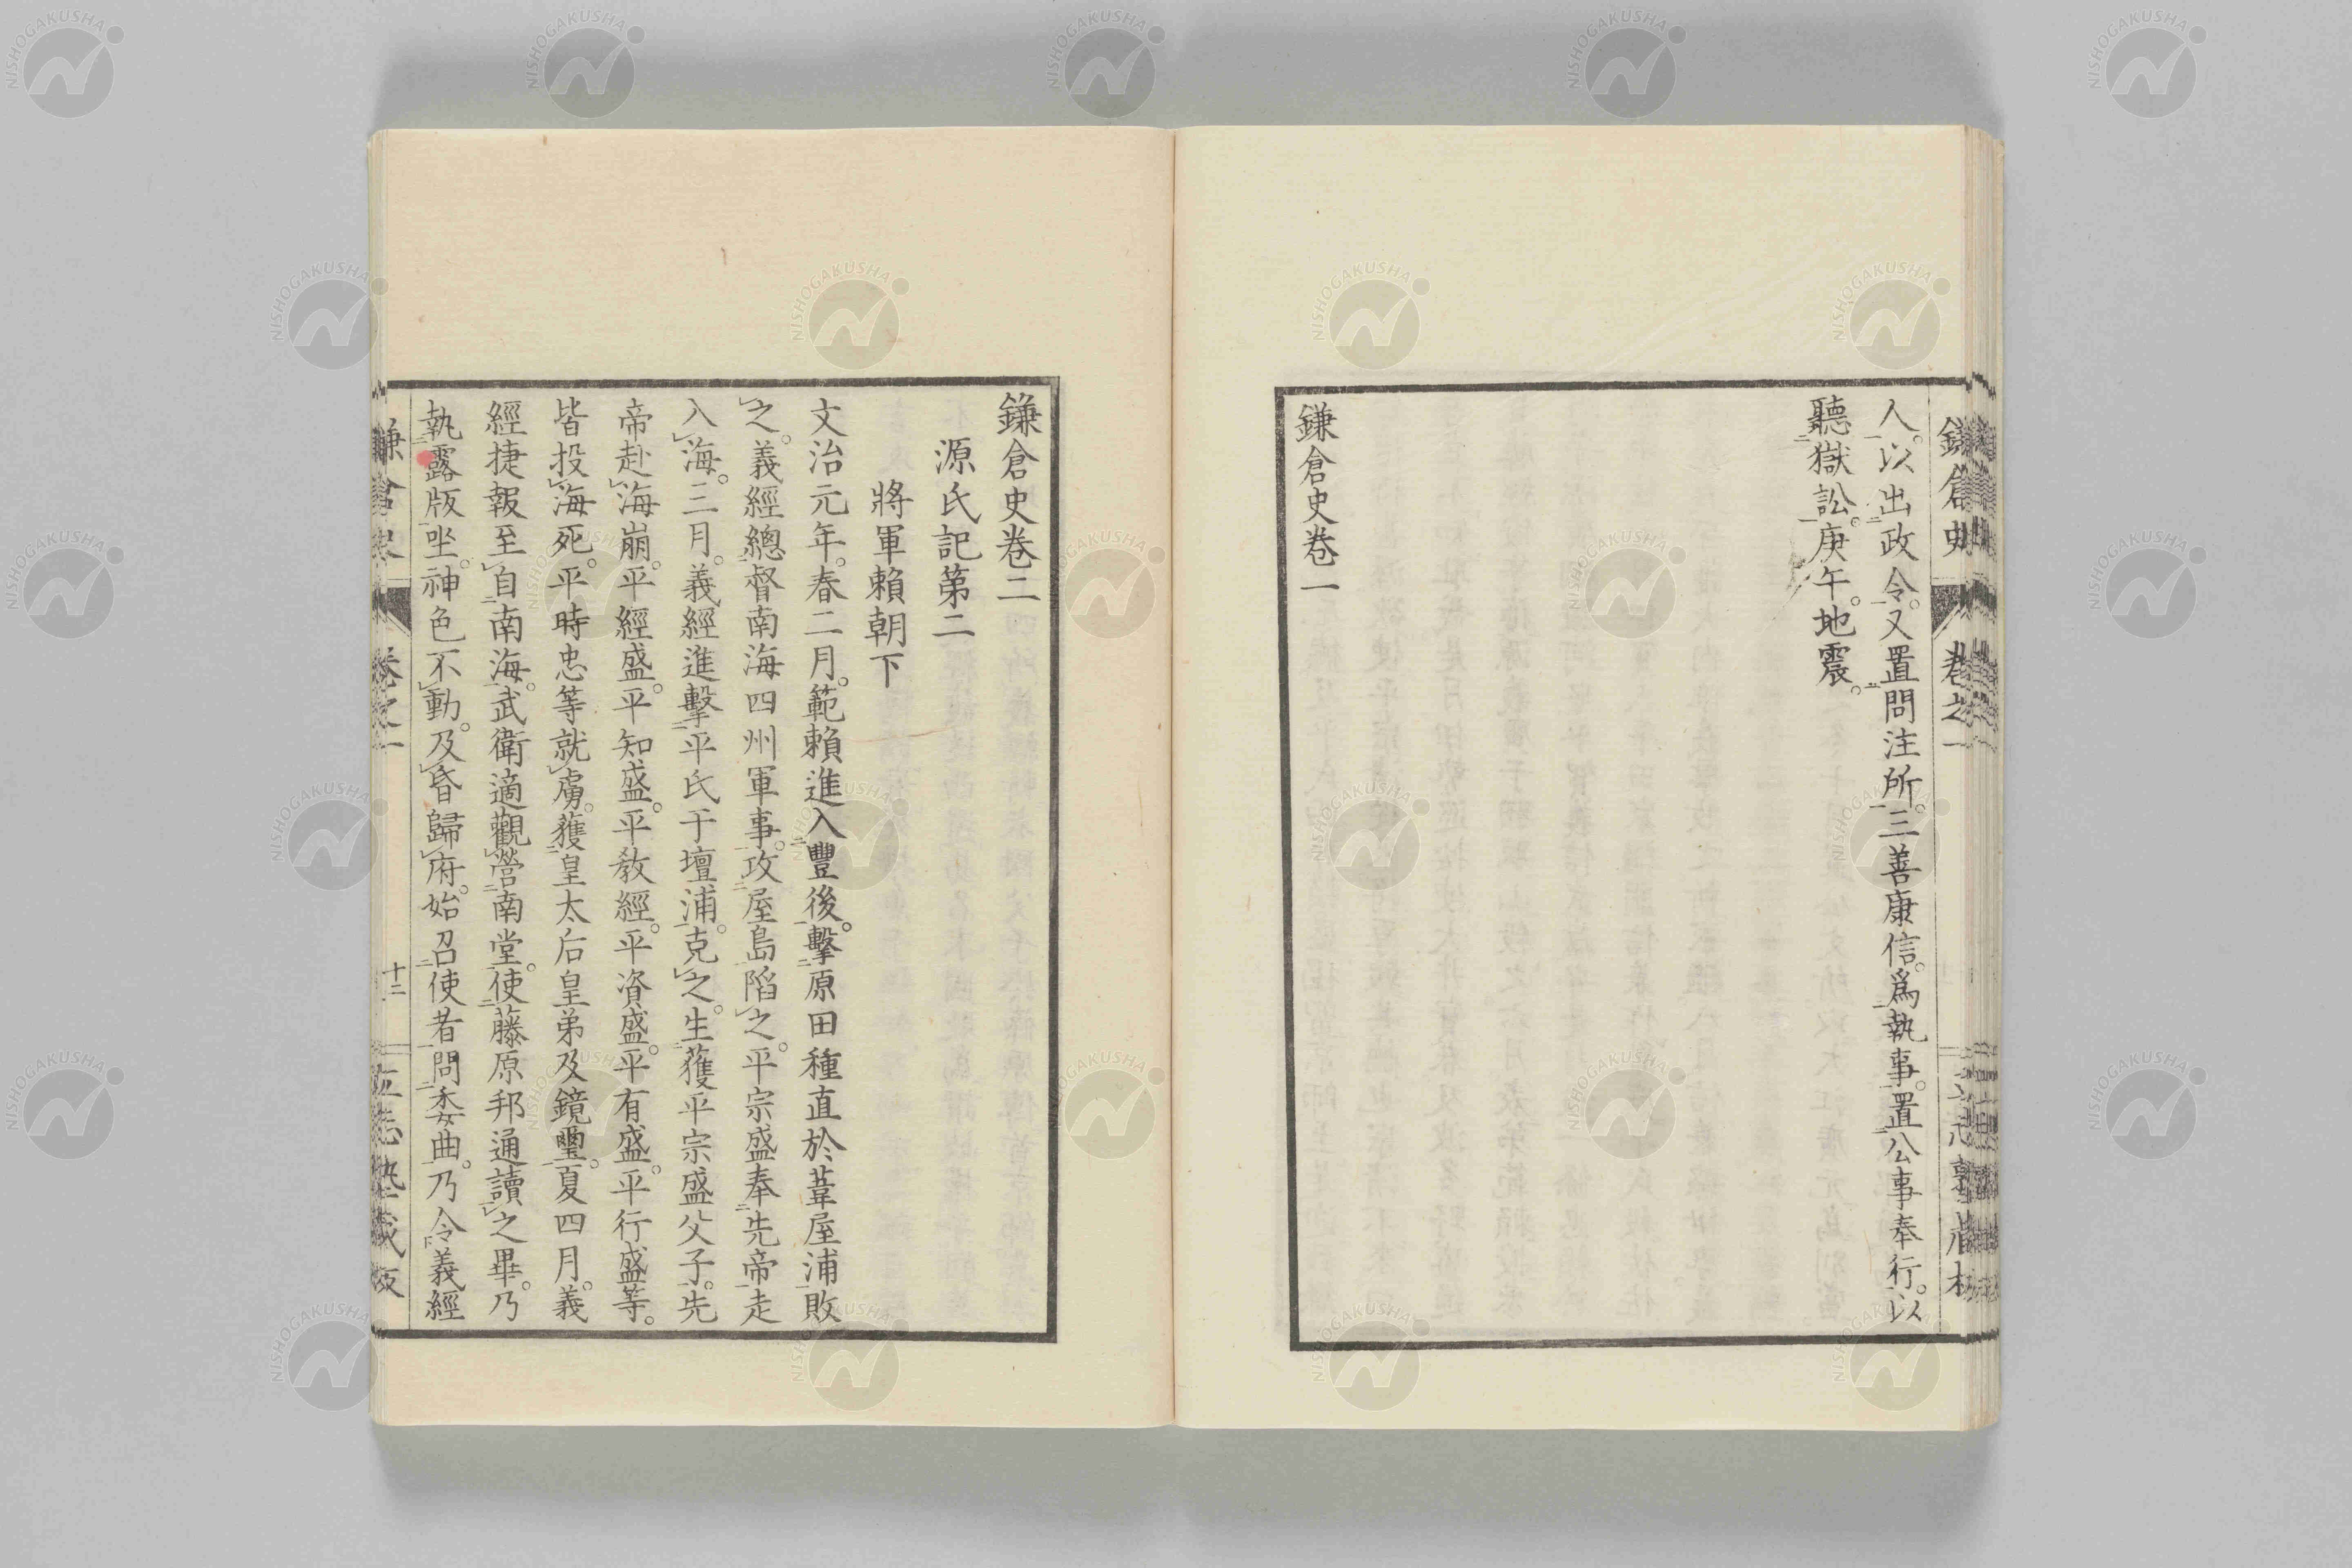 人。以出政令。又置問注所。三善康信。爲執事。置公事奉行。以
聽獄訟。庚午。地震。
鎌倉史卷一
鎌倉史卷二
源氏記第二
將軍賴朝下
文治元年。春二月。範賴進入豐後。擊原田種直於葦屋浦敗
之。義經總督南海四州軍事。攻屋島陷之。平宗盛奉先帝走
入海。三月。義經進擊平氏于壇浦。克之。生獲平宗盛父子。先
帝赴海崩。平經盛。平知盛。平教經。平資盛。平有盛。平行盛等。
皆投海死。平時忠等就虜。獲皇太后皇弟及鏡璽。夏四月。義
經捷報至自南海。武衛適觀營南堂。使藤原邦通讀之畢。乃
執露版坐。神色不動。及昏歸府。始召使者問委曲。乃令義經
鎌倉史 卷之一
十二
NISHOGAKUSHA